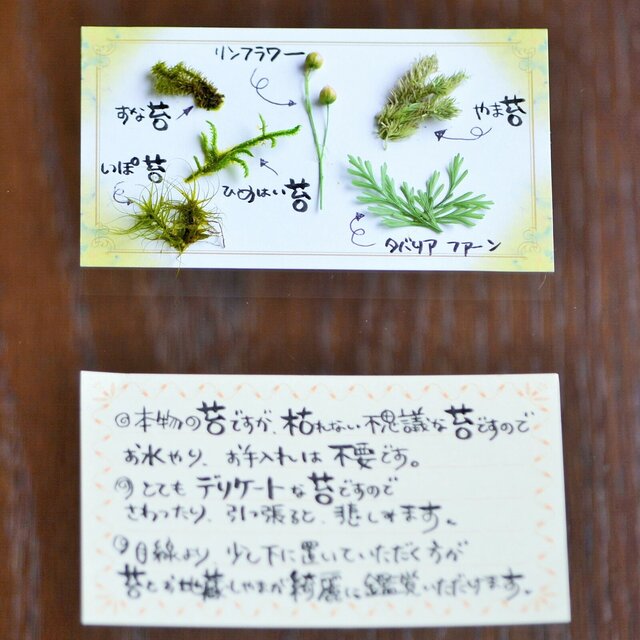 リンフラワー
すな苔
やま苔
いぽ苔
ひめはい苔
タバリア ファーン
◎本物の苔ですが、枯れない不思議な苔ですので
お水やり、お手入れは不要です。
◎とてもデリケートな苔ですので
さわったり、引っ張ると、悲しみます。
◎目線より少し下に置いていただく方が
苔とお地蔵しゃまが綺麗に鑑賞いただけます。